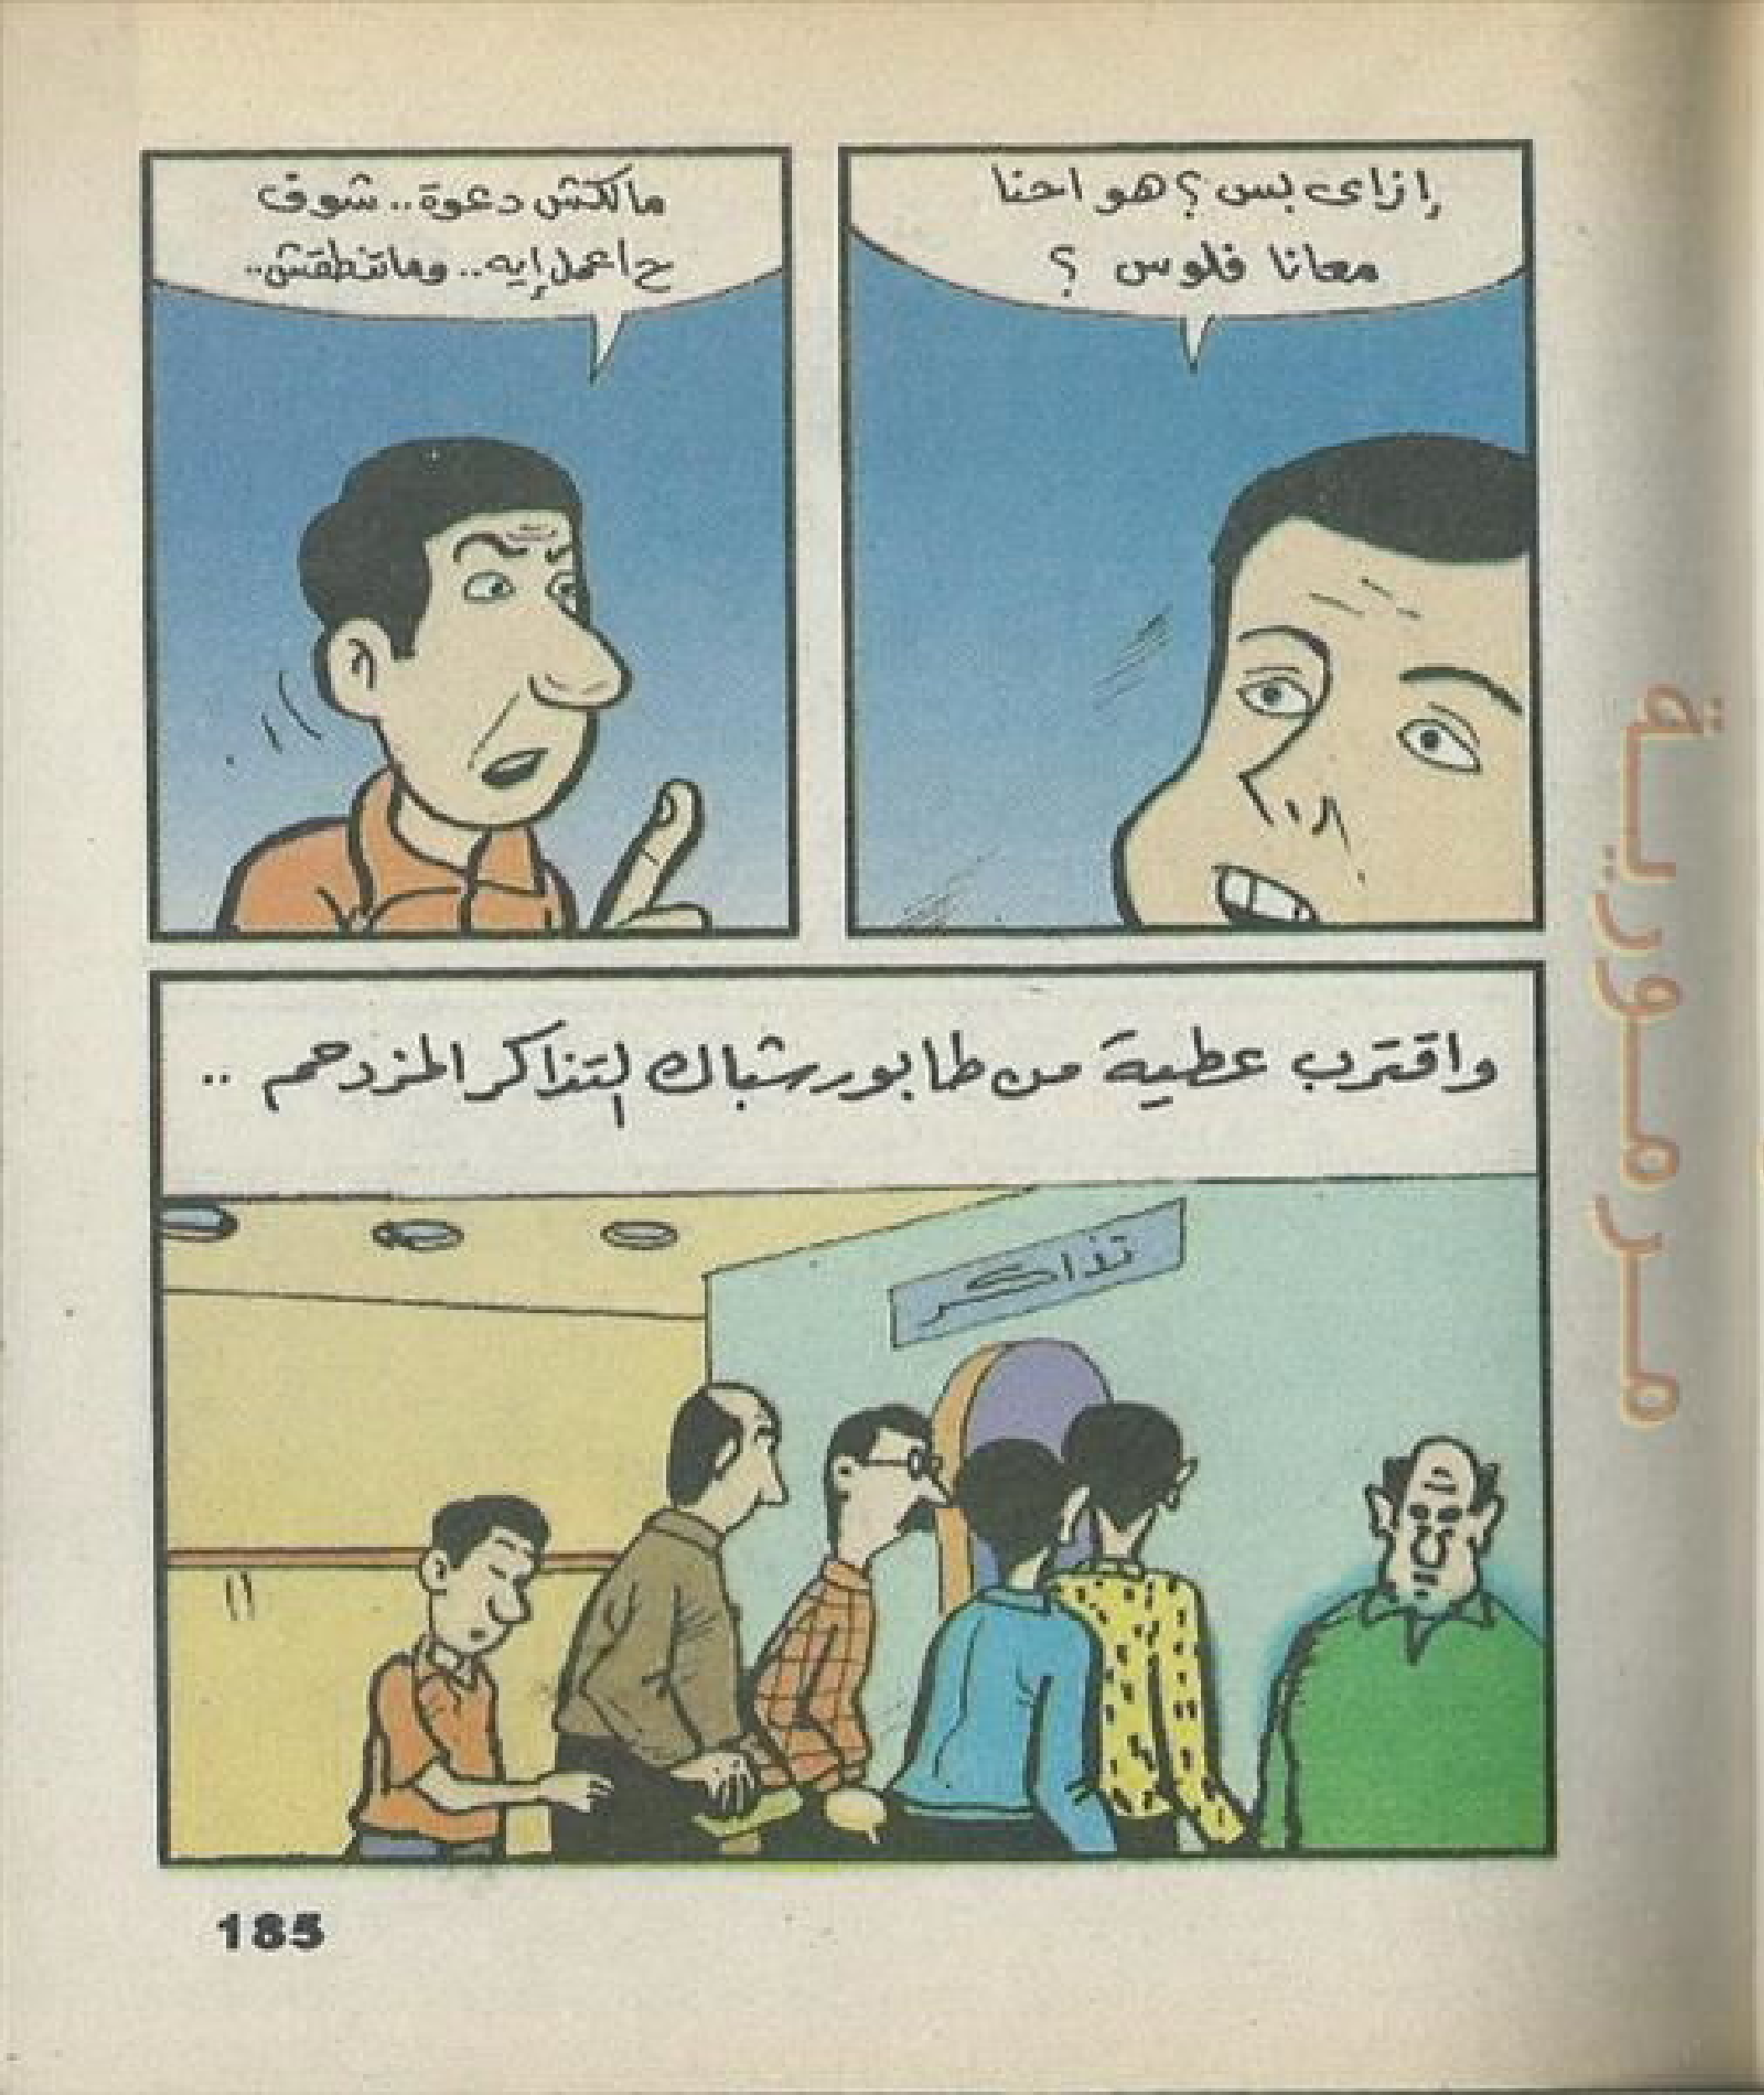 إزاى بس؟ هو احنا
معانا فلوس ؟
مالكش دعوة.. شوف
ح اعمل إيه.. وماتنطقش..
واقترب عطية من طابور شباك التذاكر المزدحم ..
تذاكر
مرمورية
185